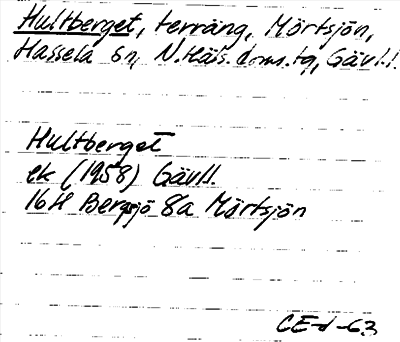 Hultberget, terräng, Mörtsjön,
Hassela sn, N.Häls. doms.tg, Gävl.l.
Hultberget
ek (1958) Gävl.l
16H Bergsjö 8a Mörtsjön
CE-d-63